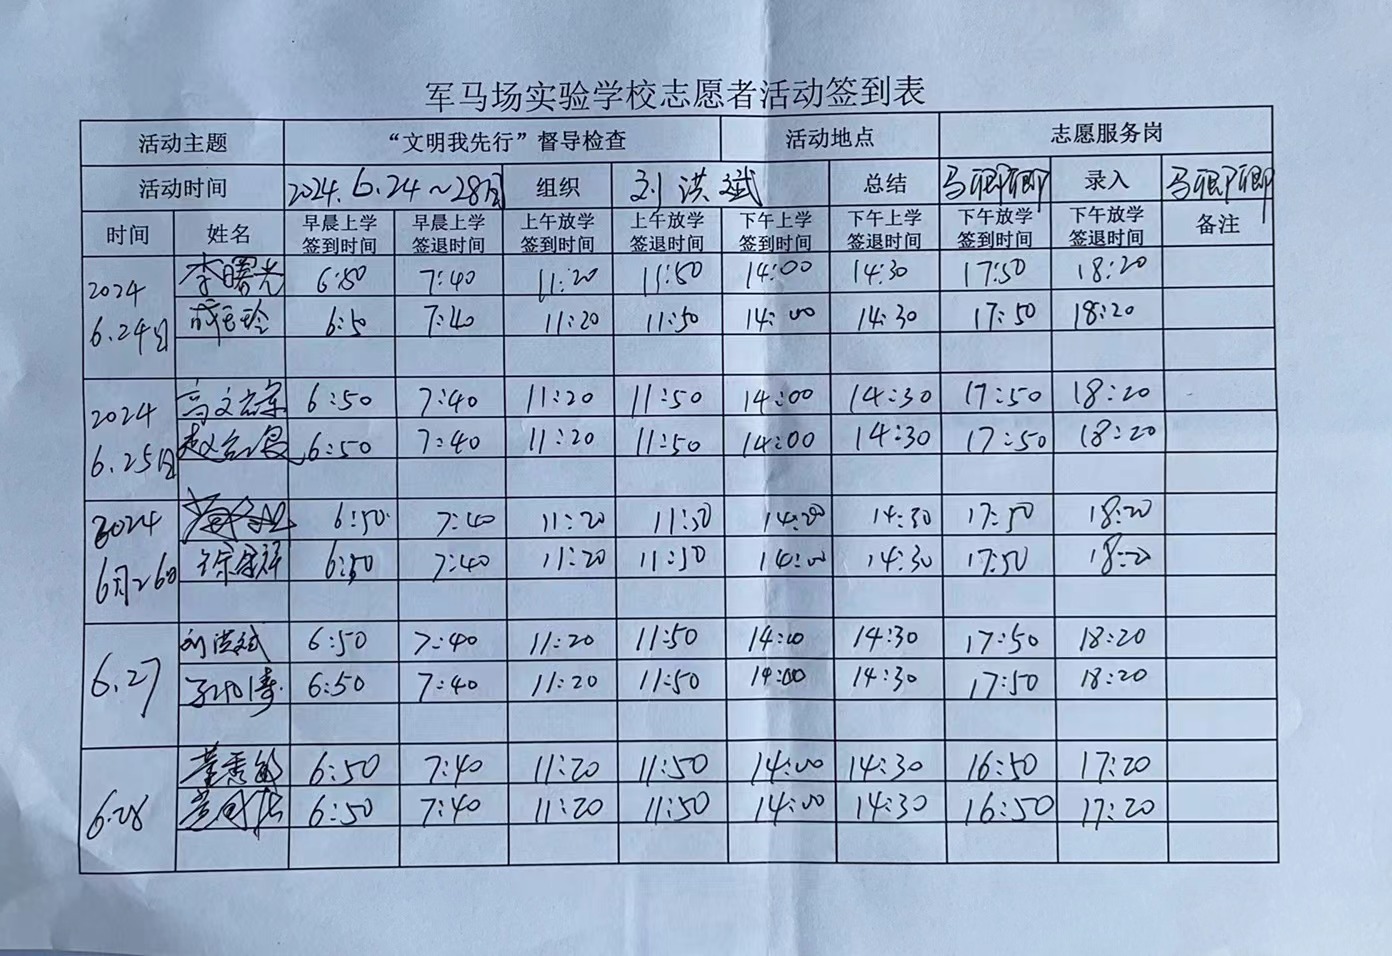 军马场实验学校志愿者活动签到表
活动主题 “文明我先行”督导检查 活动地点 志愿服务岗
活动时间 2024.6.24~28日 组织 刘洪斌 总结 录入
时间 姓名 早晨上学签到时间 早晨上学签退时间 上午放学签到时间 上午放学签退时间 下午上学签到时间 下午上学签退时间 下午放学签到时间 下午放学签退时间 备注
2024 6.24日 李曙光 6:50 7:40 11:20 11:50 14:00 14:30 17:50 18:20
6:50 7:40 11:20 11:50 14:00 14:30 17:50 18:20
2024 6.25日 6:50 7:40 11:20 11:50 14:00 14:30 17:50 18:20
6:50 7:40 11:20 11:50 14:00 14:30 17:50 18:20
2024 6月26日 6:50 7:40 11:20 11:50 14:00 14:30 17:50 18:20
6:50 7:40 11:20 11:50 14:00 14:30 17:50 18:20
6.27 刘洪斌 6:50 7:40 11:20 11:50 14:00 14:30 17:50 18:20
6:50 7:40 11:20 11:50 14:00 14:30 17:50 18:20
6.28 董秀敏 6:50 7:40 11:20 11:50 14:00 14:30 16:50 17:20
6:50 7:40 11:20 11:50 14:00 14:30 16:50 17:20